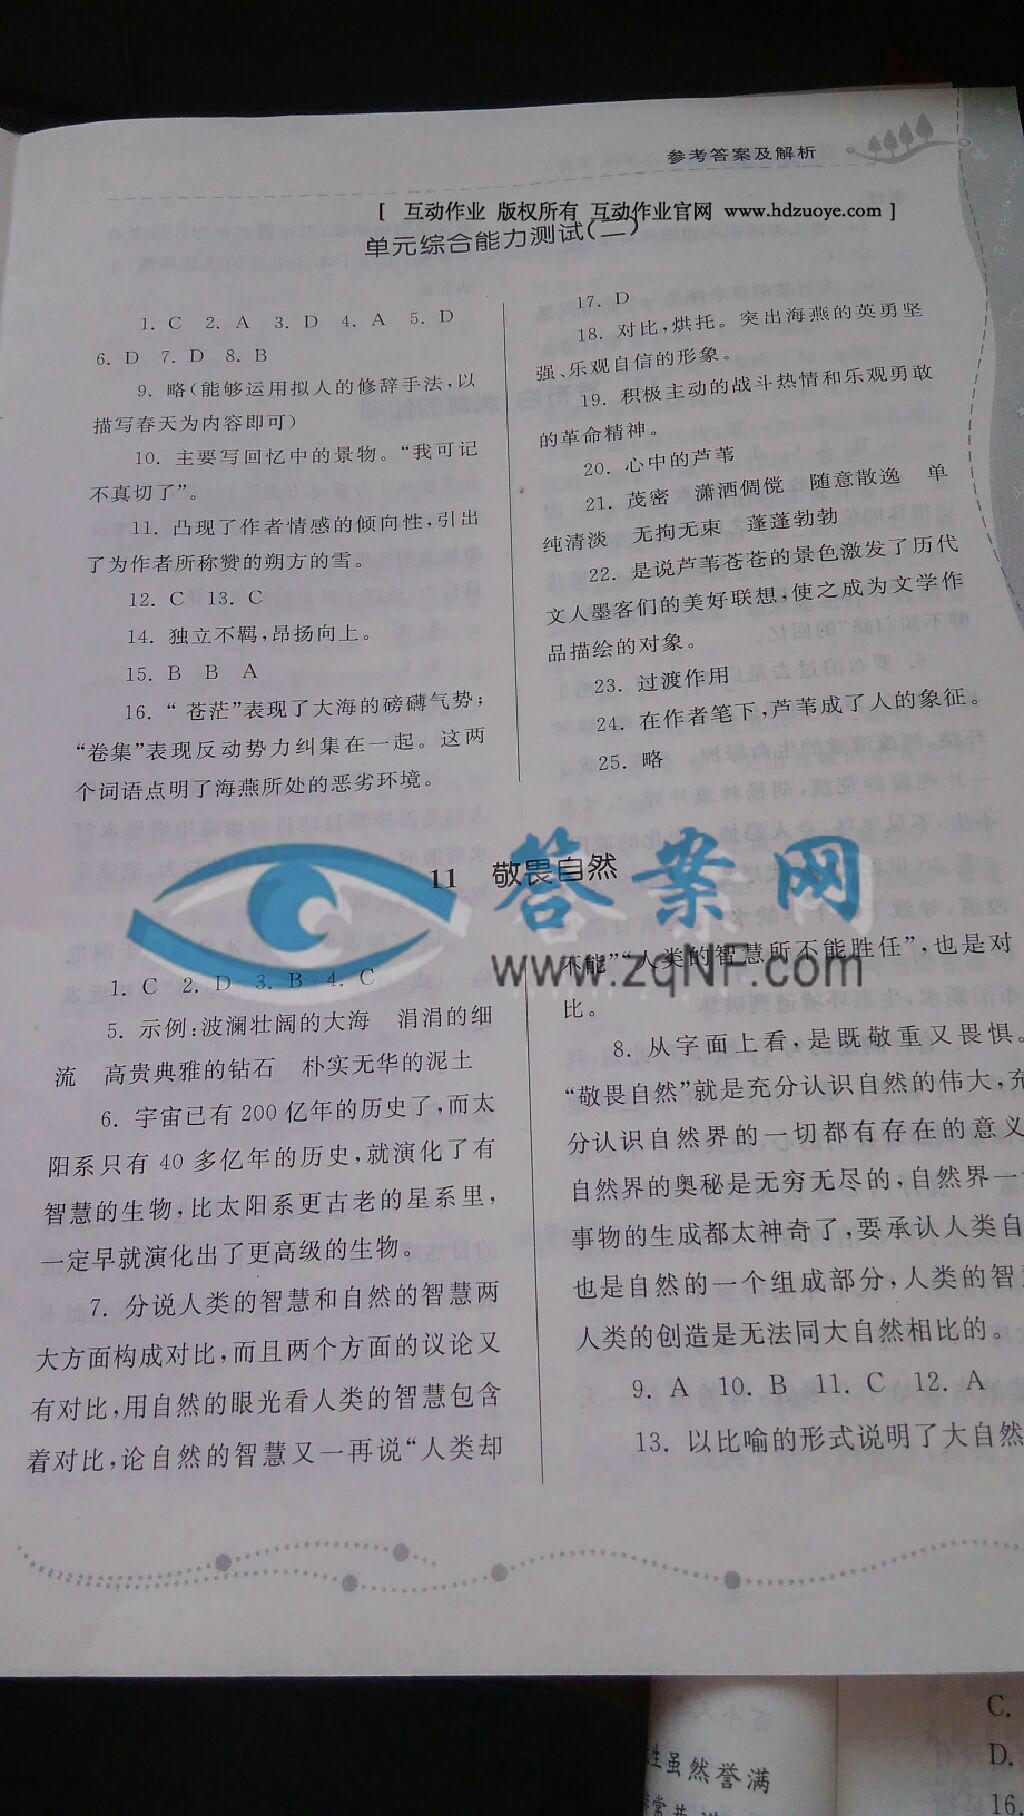 参考答案及解析
[ 互动作业 版权所有 互动作业官网 www.hdzuoye.com ]
单元综合能力测试(二)
1. C 2. A 3. D 4. A 5. D
6. D 7. D 8. B
9. 略(能够运用拟人的修辞手法,以
描写春天为内容即可)
10. 主要写回忆中的景物。“我可记
不真切了”。
11. 凸现了作者情感的倾向性,引出
了为作者所称赞的朔方的雪。
12. C 13. C
14. 独立不羁,昂扬向上。
15. B B A
16. “苍茫”表现了大海的磅礴气势;
“卷集”表现反动势力纠集在一起。这两
个词语点明了海燕所处的恶劣环境。
17. D
18. 对比,烘托。突出海燕的英勇坚
强、乐观自信的形象。
19. 积极主动的战斗热情和乐观勇敢
的革命精神。
20. 心中的芦苇
21. 茂密 潇洒倜傥 随意散逸 单
纯清淡 无拘无束 蓬蓬勃勃
22. 是说芦苇苍苍的景色激发了历代
文人墨客们的美好联想,使之成为文学作
品描绘的对象。
23. 过渡作用
24. 在作者笔下,芦苇成了人的象征。
25. 略
11 敬畏自然
答案网
www.zqNF.com
1. C 2. D 3. B 4. C
5. 示例:波澜壮阔的大海 涓涓的细
流 高贵典雅的钻石 朴实无华的泥土
6. 宇宙已有 200 亿年的历史了,而太
阳系只有 40 多亿年的历史,就演化了有
智慧的生物,比太阳系更古老的星系里,
一定早就演化出了更高级的生物。
7. 分说人类的智慧和自然的智慧两
大方面构成对比,而且两个方面的议论又
有对比,用自然的眼光看人类的智慧包含
着对比,论自然的智慧又一再说“人类却
不能”“人类的智慧所不能胜任”,也是对
比。
8. 从字面上看,是既敬重又畏惧。
“敬畏自然”就是充分认识自然的伟大,充
分认识自然界的一切都有存在的意义
自然界的奥秘是无穷无尽的,自然界一
事物的生成都太神奇了,要承认人类自
也是自然的一个组成部分,人类的智
人类的创造是无法同大自然相比的。
9. A 10. B 11. C 12. A
13. 以比喻的形式说明了大自然
生虽然誉满
C.
D.
16